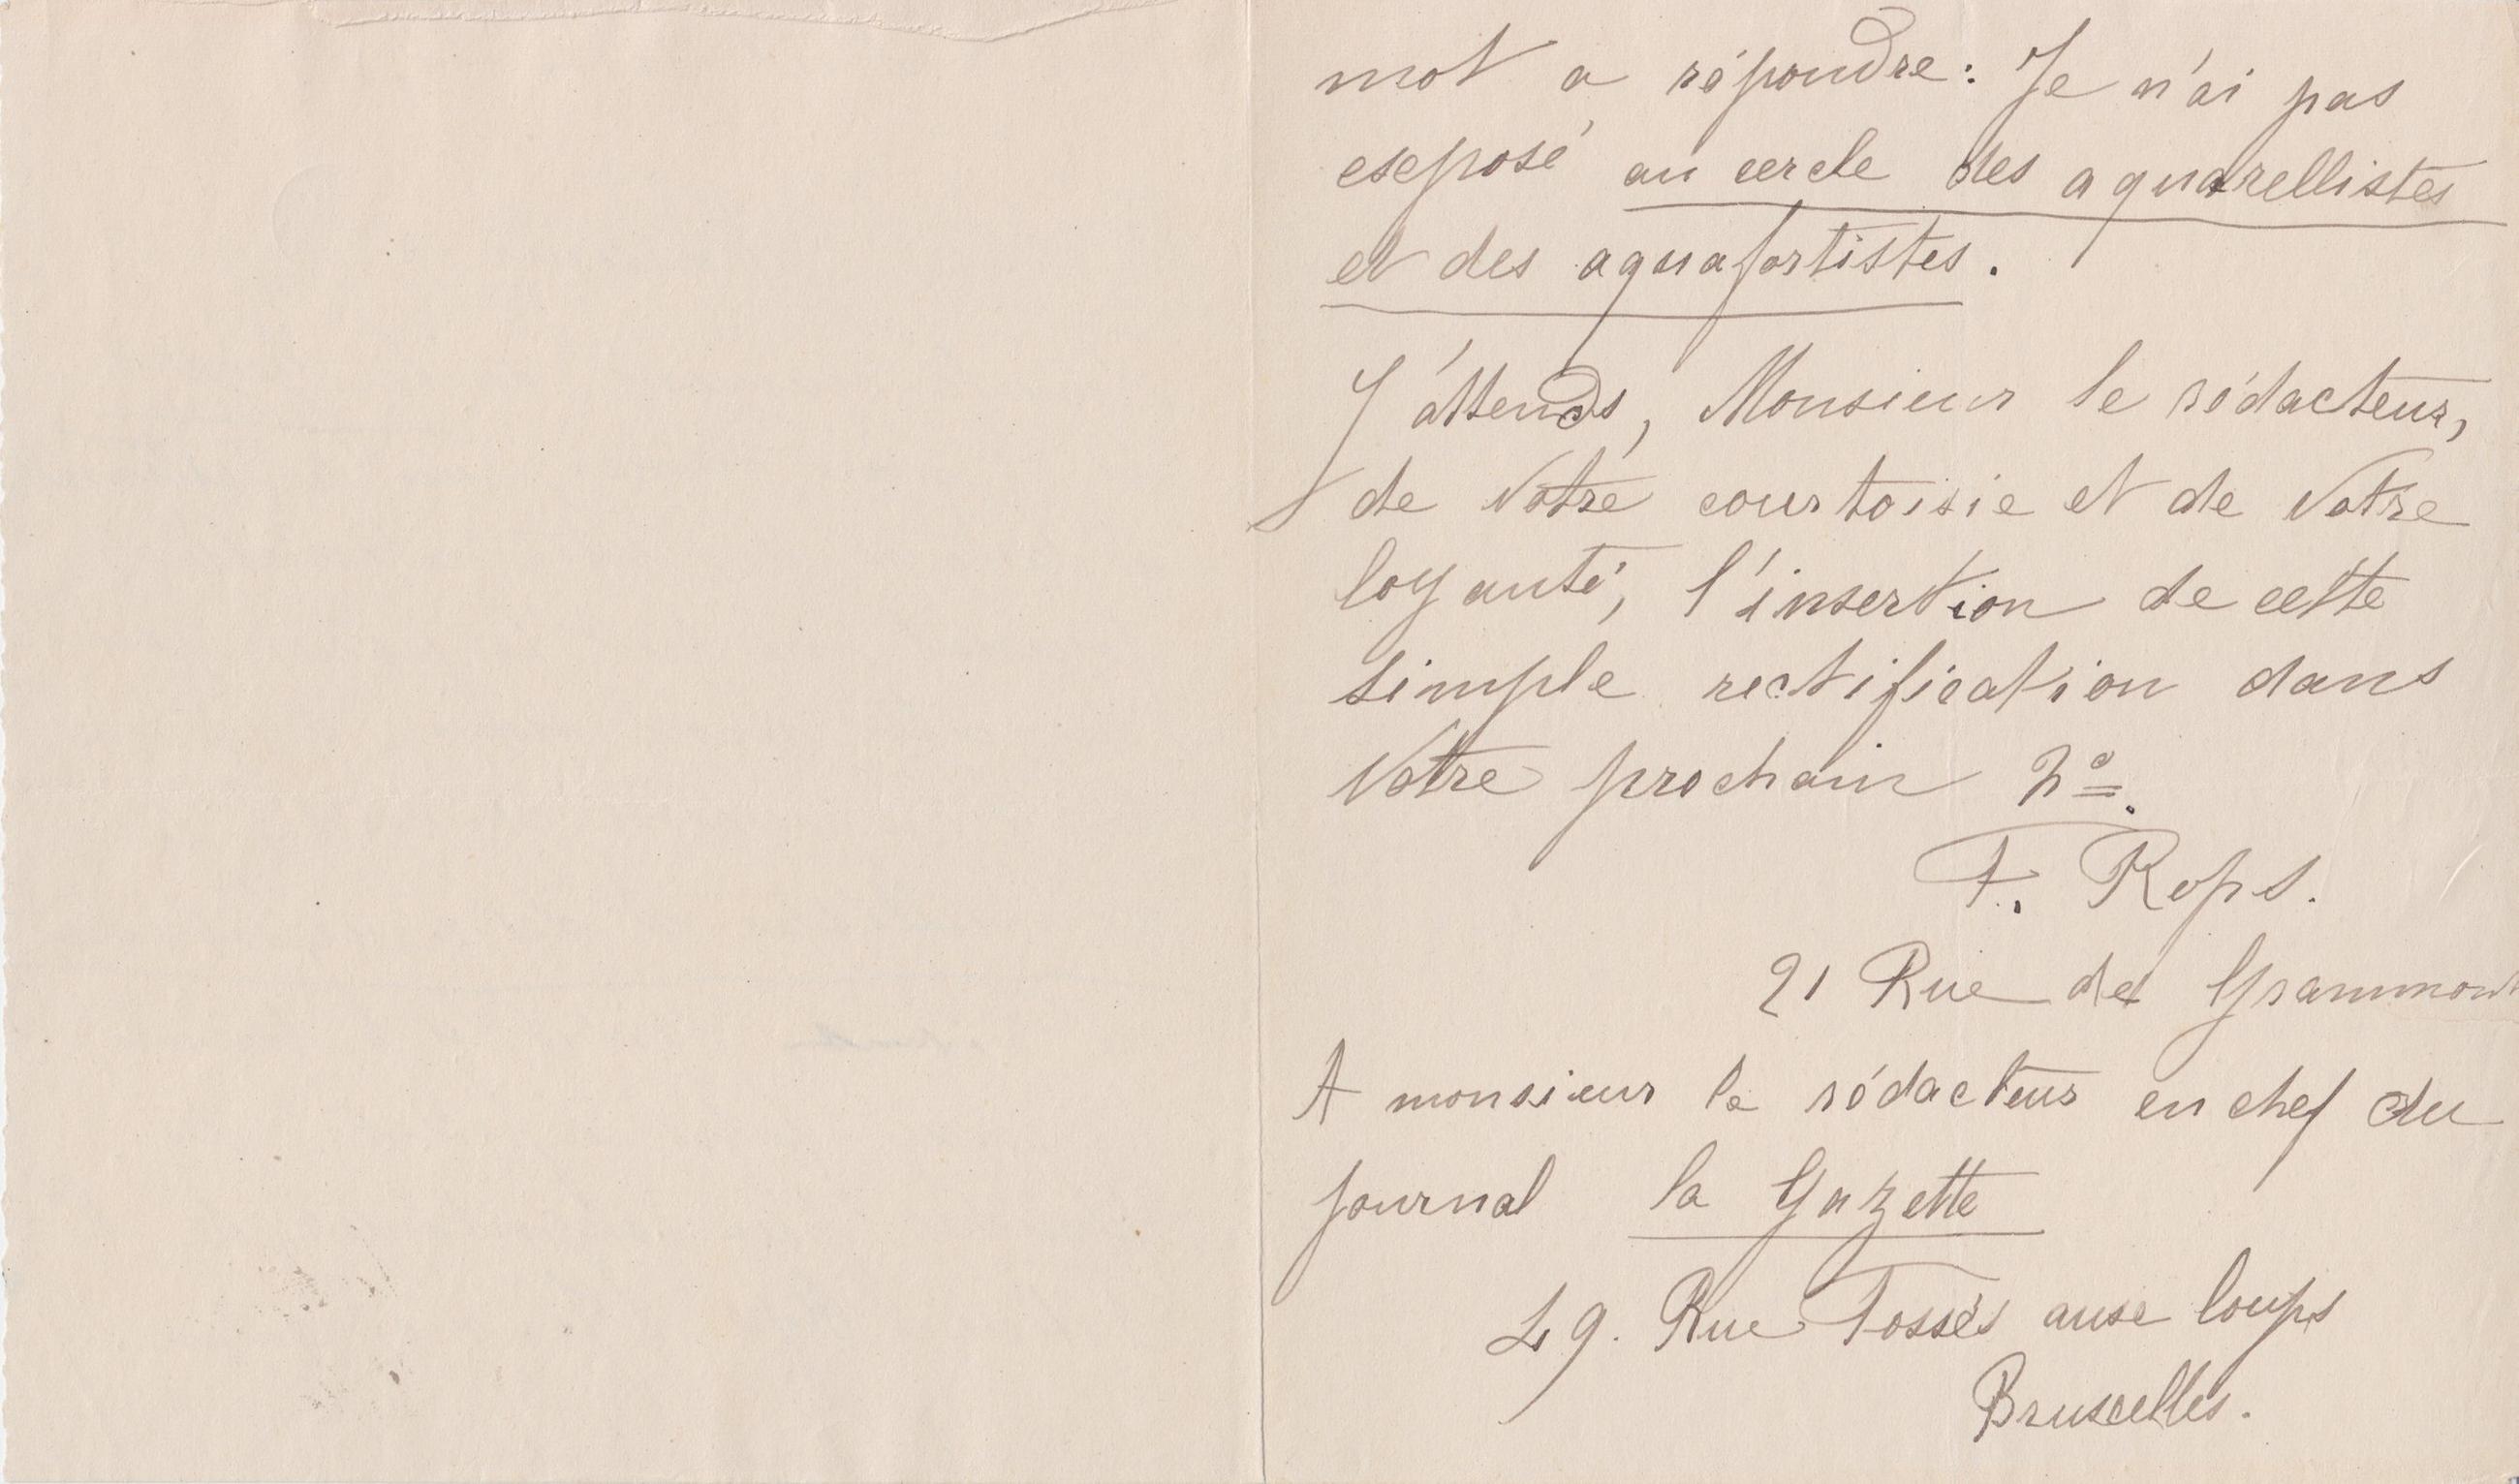 mot a répondre : Je n'ai pas
exposé au cercle des aquarellistes
et des aquafortistes.
J'attends, Monsieur le rédacteur,
de votre courtoisie et de votre
loyauté, l'insertion de cette
simple rectification dans
votre prochain No.
F. Rops.
21 Rue de Grammont
A monsieur le rédacteur en chef du
journal la Gazette
49. Rue Fossés aux loups
Bruxelles.